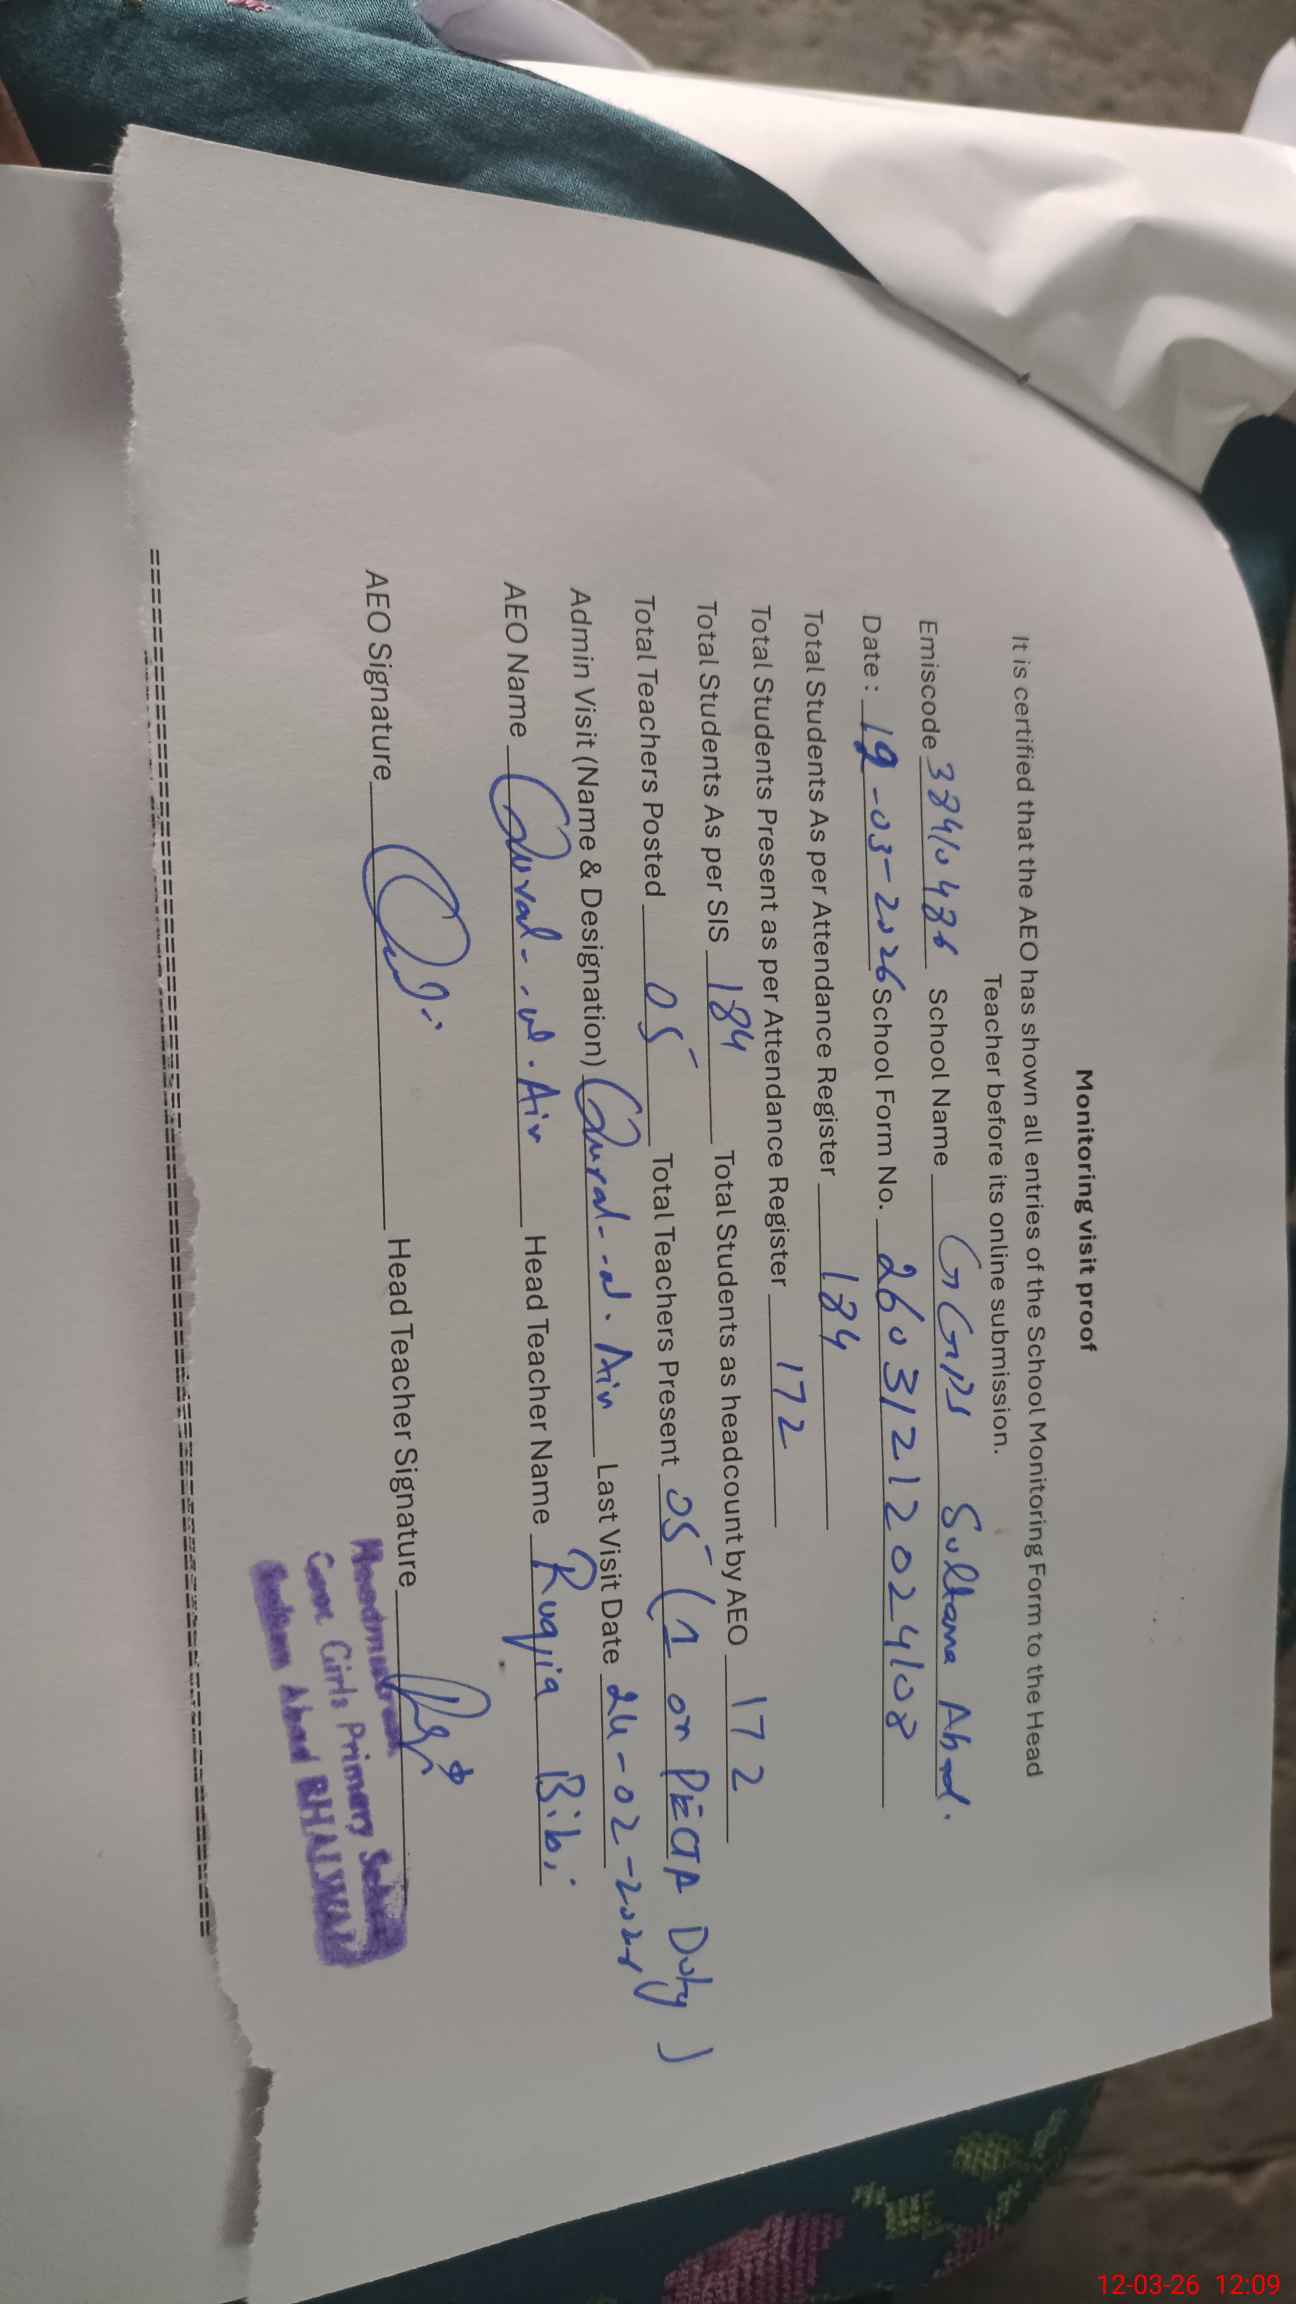 Monitoring visit proof
It is certified that the AEO has shown all entries of the School Monitoring Form to the Head
Teacher before its online submission.
Emiscode 38410486 School Name GGPS Sultana Abad.
Date: 12-03-2026 School Form No. 26031212024108
Total Students As per Attendance Register 184
Total Students Present as per Attendance Register 172
Total Students As per SIS 184 Total Students as headcount by AEO 172
Total Teachers Posted 05 Total Teachers Present 05 (1 on PECTA Duty)
Admin Visit (Name & Designation) Qurat-ul-Ain Last Visit Date 24-02-2026
AEO Name Qurat-ul-Ain Head Teacher Name Ruqia Bibi
AEO Signature Head Teacher Signature
Headmistress
Govt. Girls Primary School
Sultan Abad BHALWAL
12-03-26 12:09